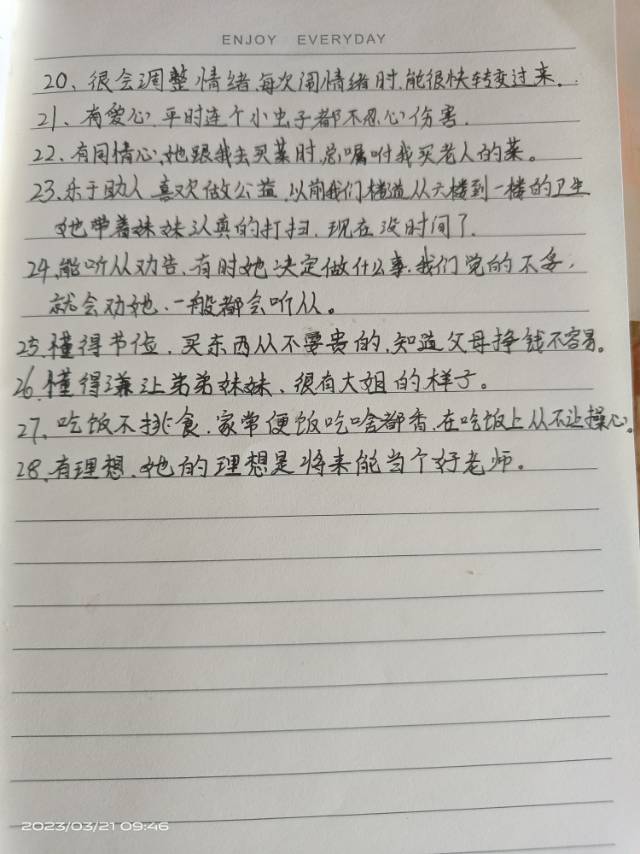 ENJOY EVERYDAY
20、很会调整情绪,每次闹情绪时,能很快转变过来.
21、有爱心,平时连个小虫子都不忍心伤害.
22、有同情心,她跟我去买菜时,总嘱咐我买老人的菜。
23、乐于助人,喜欢做公益,以前我们楼道从六楼到一楼的卫生
她带着妹妹认真的打扫,现在没时间了.
24、能听从劝告、有时她决定做什么事,我们觉的不妥,
就会劝她、一般都会听从。
25、懂得节俭,买东西从不要贵的,知道父母挣钱不容易。
26、懂得谦让弟弟妹妹、很有大姐的样子。
27、吃饭不挑食,家常便饭吃啥都香,在吃饭上从不让操心。
28、有理想,她的理想是将来能当个好老师。
2023/03/21 09:46